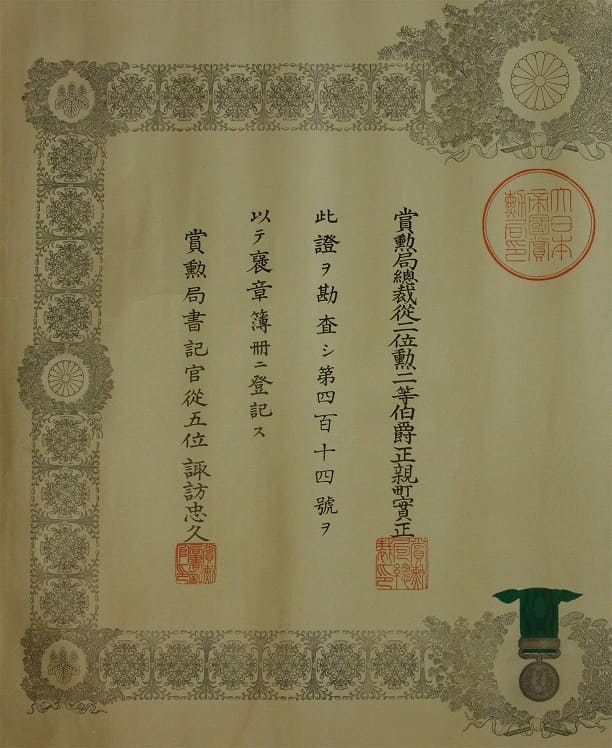 大日本
帝國賞
勳局印
賞勲局總裁從二位勲二等伯爵正親町實正
賞勲
局總
裁印
此證ヲ勘査シ第四百十四號ヲ
以テ褒章簿册ニ登記ス
賞勲局書記官從五位 諏訪忠久